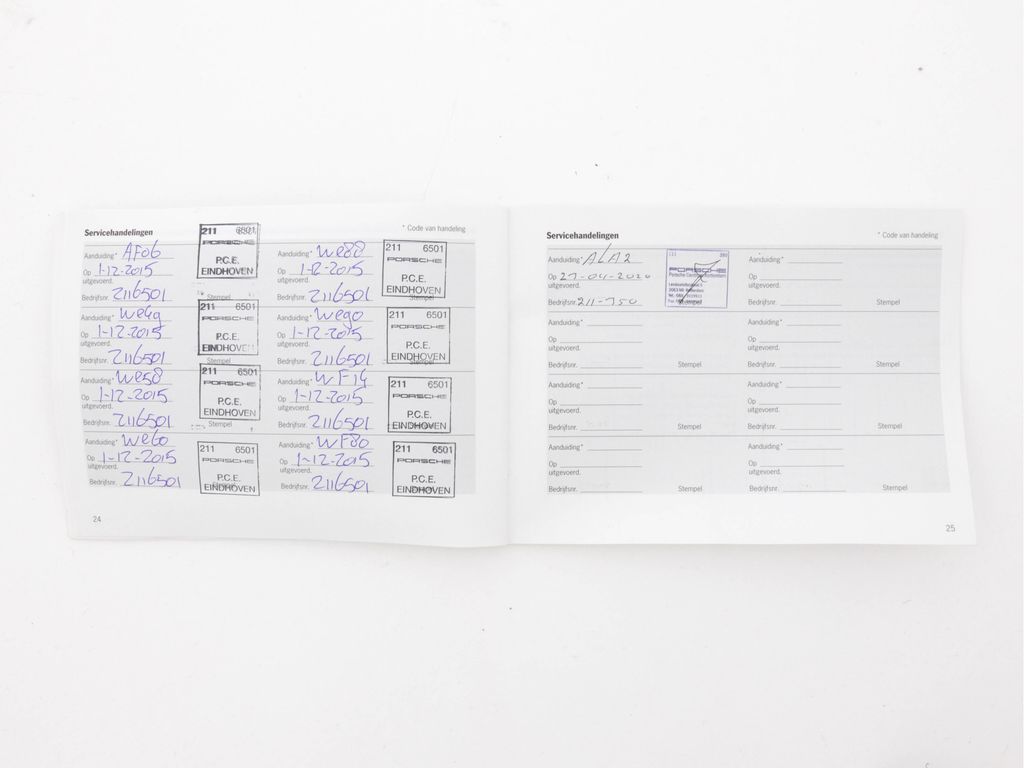 Servicehandelingen
* Code van handeling
Aanduiding* AF06
Op 1-12-2015
uitgevoerd.
Bedrijfsnr. 2116501
Stempel
211 6501
PORSCHE
P.C.E.
EINDHOVEN
Aanduiding* We88
Op 1-12-2015
uitgevoerd.
Bedrijfsnr. 2116501
Stempel
211 6501
PORSCHE
P.C.E.
EINDHOVEN
Aanduiding* We4g
Op 1-12-2015
uitgevoerd.
Bedrijfsnr. 2116501
Stempel
211 6501
PORSCHE
P.C.E.
EINDHOVEN
Aanduiding* Wego
Op 1-12-2015
uitgevoerd.
Bedrijfsnr. 2116501
211 6501
PORSCHE
P.C.E.
EINDHOVEN
Aanduiding* We58
Op 1-12-2015
uitgevoerd.
Bedrijfsnr. 2116501
Stempel
211 6501
PORSCHE
P.C.E.
EINDHOVEN
Aanduiding* WF14
Op 1-12-2015
uitgevoerd.
Bedrijfsnr. 2116501
211 6501
PORSCHE
P.C.E.
EINDHOVEN
Aanduiding* We60
Op 1-12-2015
uitgevoerd.
Bedrijfsnr. 2116501
211 6501
PORSCHE
P.C.E.
EINDHOVEN
Aanduiding* WF80
Op 1-12-2015
uitgevoerd.
Bedrijfsnr. 2116501
211 6501
PORSCHE
P.C.E.
EINDHOVEN
24
Servicehandelingen
* Code van handeling
Aanduiding* ALA2
Op 27-04-2020
uitgevoerd.
Bedrijfsnr. 211-750
PORSCHE
Porsche Centrum
Aanduiding*
Op
uitgevoerd.
Bedrijfsnr. Stempel
Aanduiding*
Op
uitgevoerd.
Bedrijfsnr. Stempel
Aanduiding*
Op
uitgevoerd.
Bedrijfsnr. Stempel
Aanduiding*
Op
uitgevoerd.
Bedrijfsnr. Stempel
Aanduiding*
Op
uitgevoerd.
Bedrijfsnr. Stempel
Aanduiding*
Op
uitgevoerd.
Bedrijfsnr. Stempel
Aanduiding*
Op
uitgevoerd.
Bedrijfsnr. Stempel
25